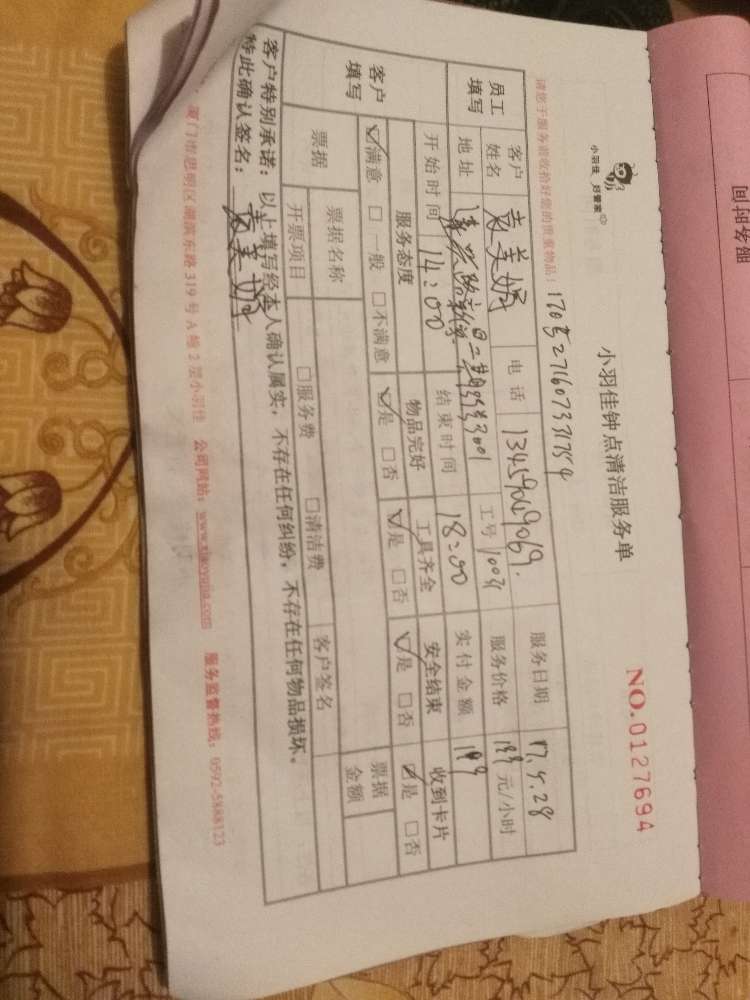 小羽佳 好管家
小羽佳钟点清洁服务单
NO.0127694
请您于服务前收拾好您的贵重物品!
员工填写 客户姓名 电话 13459049069. 服务日期 17.5.28
地址 工号 服务价格 元/小时
开始时间 14:00 结束时间 18:00 实付金额
客户填写 服务态度 物品完好 工具齐全 安全结束 收到卡片
☑满意 □一般 □不满意 ☑是 □否 ☑是 □否 ☑是 □否 ☑是 □否
票据 票据名称 票据金额
开票项目 □服务费 □清洁费 客户签名
客户特别承诺:以上填写经本人确认属实,不存在任何纠纷,不存在任何物品损坏。
特此确认签名:
厦门市思明区湖滨东路 319 号 A 幢 2 层小羽佳 公司网站:www.xiaoyujia.com 服务监督热线:0592-5888123